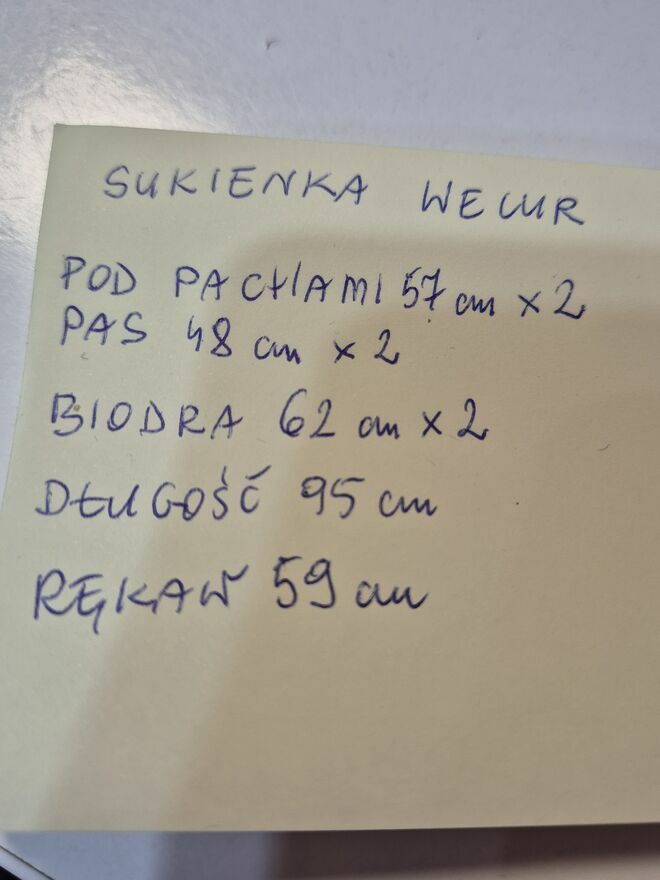 SUKIENKA WELUR
POD PACHAMI 57 cm x 2
PAS 48 cm x 2
BIODRA 62 cm x 2
DŁUGOŚĆ 95 cm
RĘKAW 59 cm